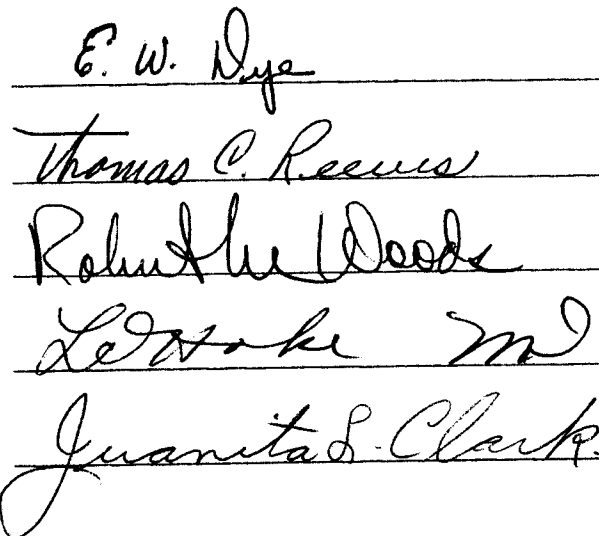 E. W. Dye
Thomas C. Reeves
Robert Lee Woods
Hoke MD
Juanita L. Clark